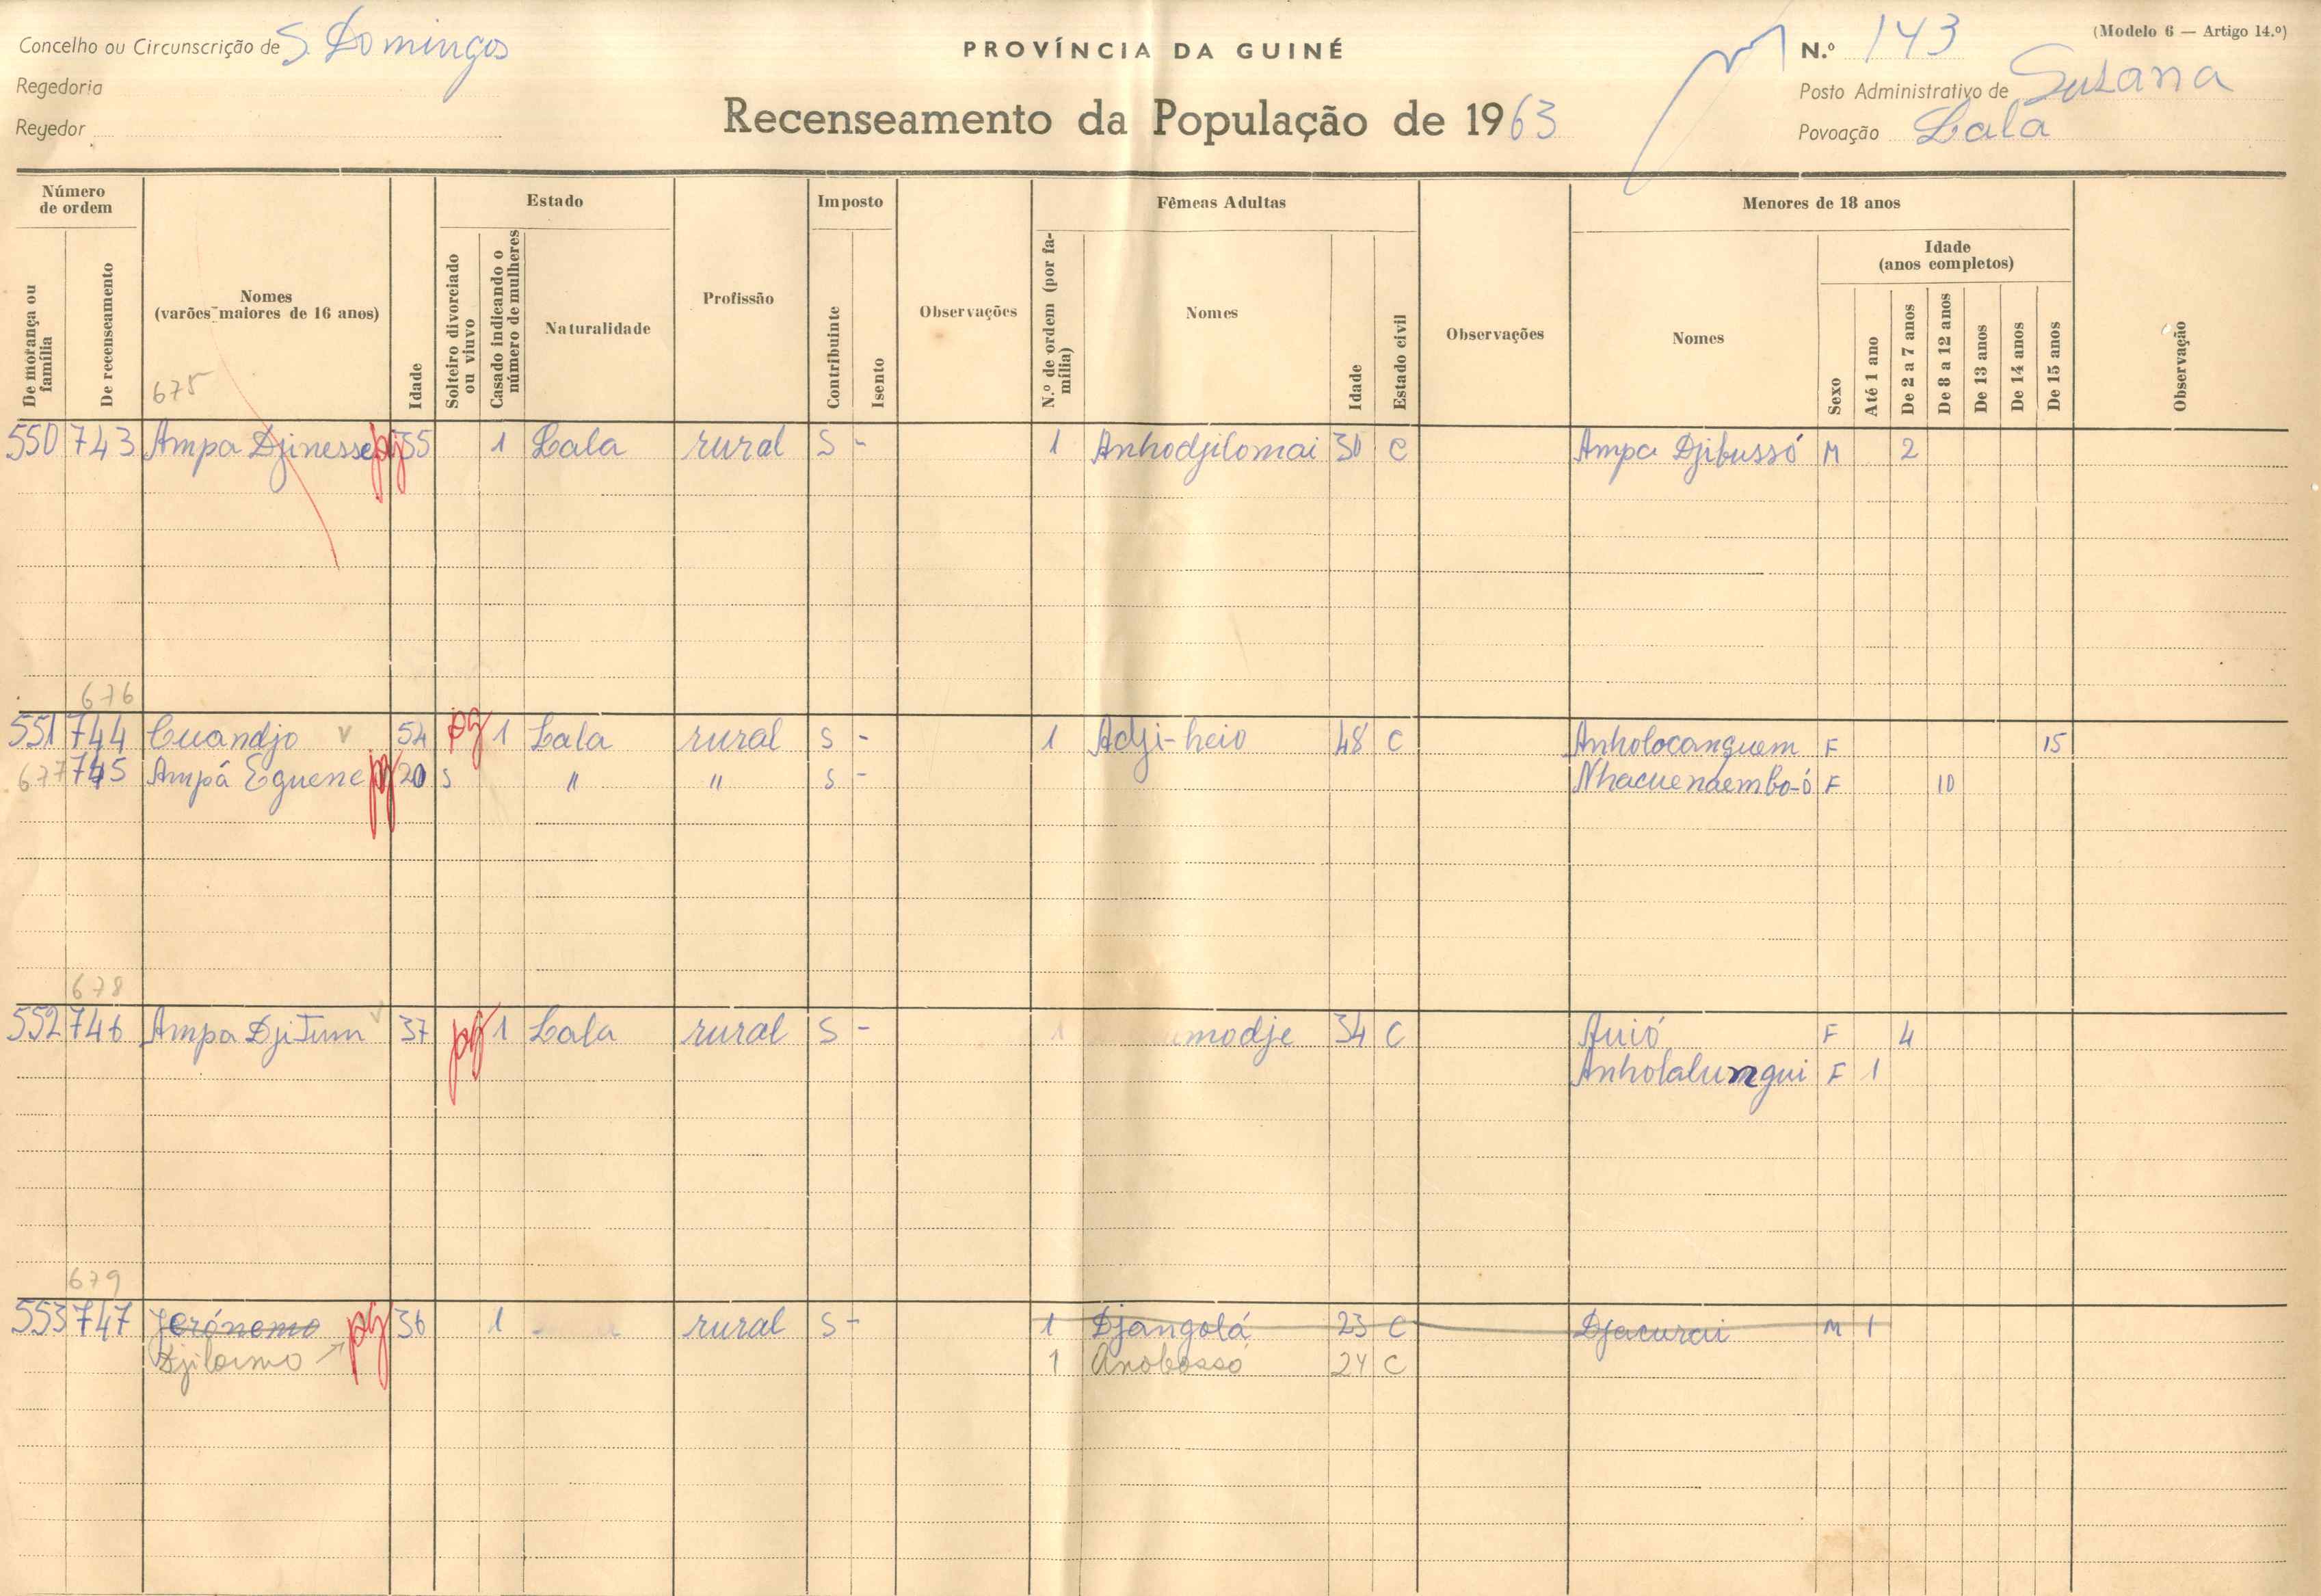 Concelho ou Circunscrição de S. Domingos
Regedoria
Regedor
PROVÍNCIA DA GUINÉ
Recenseamento da População de 1963
(Modelo 6 — Artigo 14.º)
N.º 143
Posto Administrativo de Suzana
Povoação Lala
Número de ordem
De morança ou família
De recenseamento
Nomes
(varões maiores de 16 anos)
Idade
Estado
Solteiro divorciado ou viuvo
Casado indicando o número de mulheres
Naturalidade
Profissão
Imposto
Contribuinte
Isento
Observações
Fêmeas Adultas
N.º de ordem (por família)
Nomes
Idade
Estado civil
Observações
Menores de 18 anos
Nomes
Sexo
Idade
(anos completos)
Até 1 ano
De 2 a 7 anos
De 8 a 12 anos
De 13 anos
De 14 anos
De 15 anos
Observação
675
550 743 Ampa Djinesse pg 35 1 Lala rural S - 1 Anhodjilomai 30 C Ampa Djibussó M 2
676
551 744 Cuandjo v 54 pg 1 Lala rural S - 1 Adji-heio 48 C Anholocanguem F 15
677 745 Ampá Eguene pg 20 S " " S - Nhacuenaembo-ó F 10
678
552 746 Ampa DjiTum v 37 pg 1 Lala rural S - 1 modje 34 C Auió F 4
Anholalumgui F 1
679
553 747 Jerónemo pg 36 1 rural S - 1 Djangolá 23 C Djacurai M 1
Djiloimo 1 Anobossó 24 C